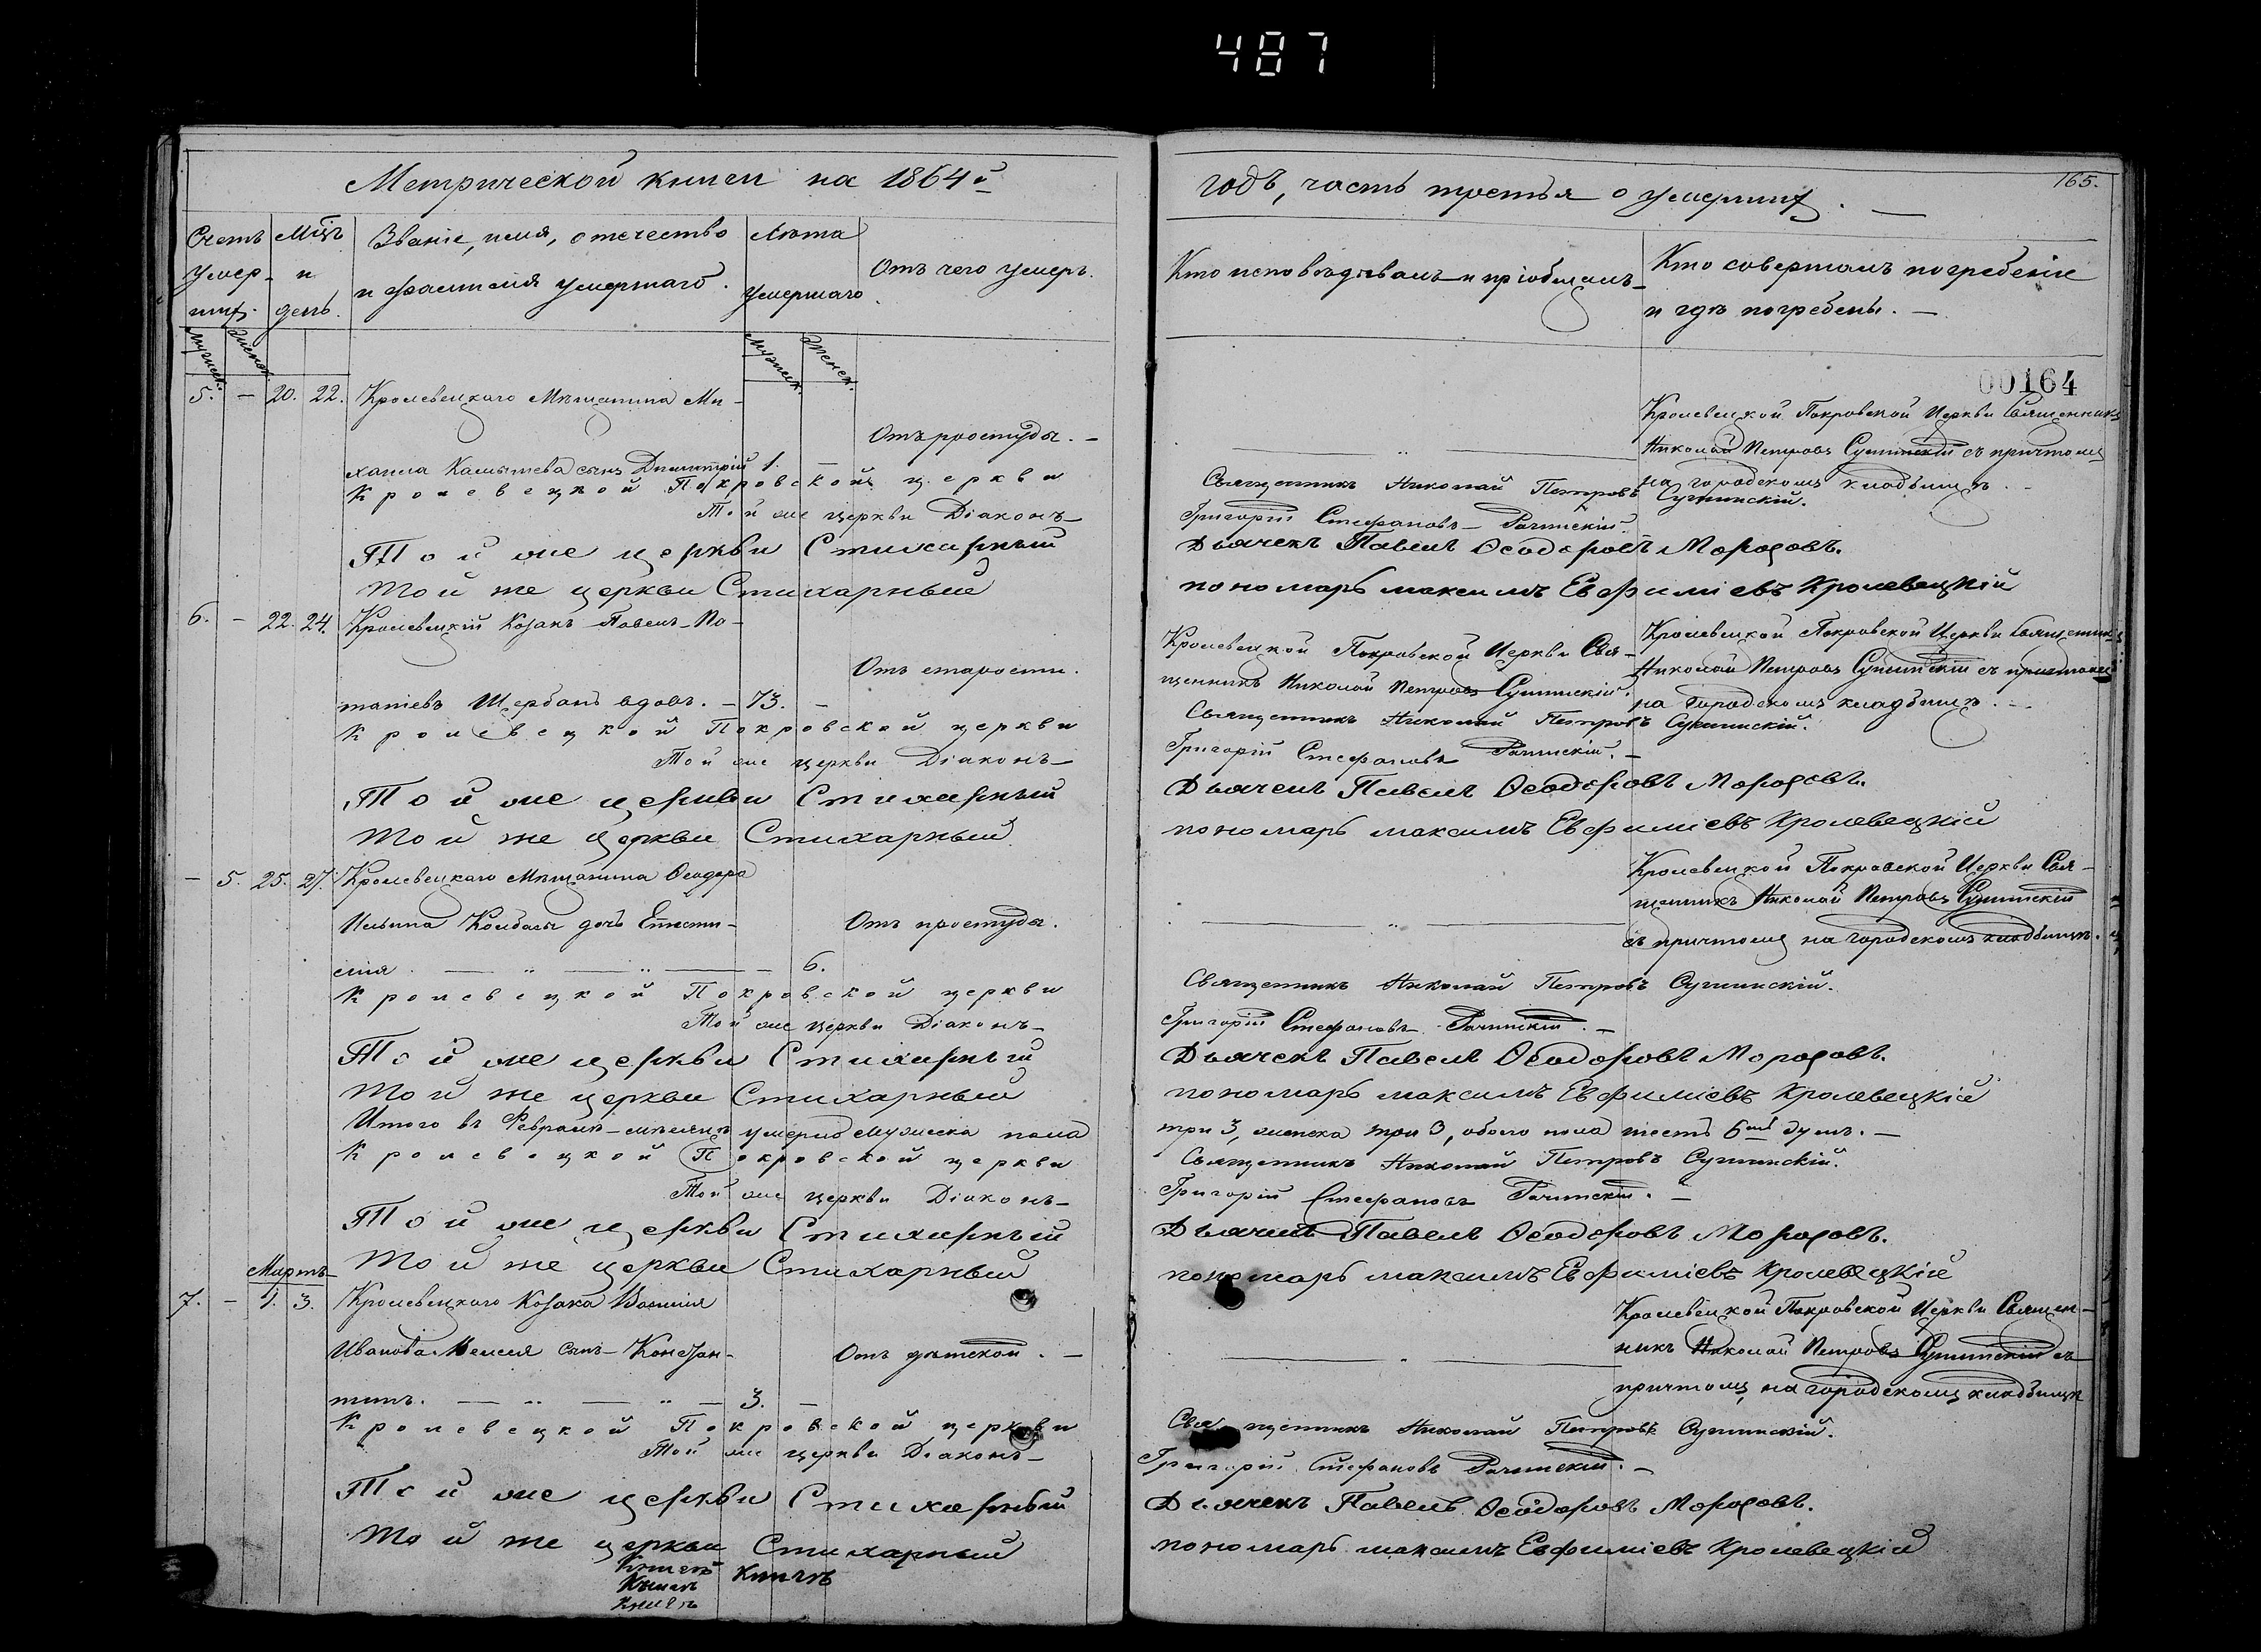 487
Метрической книги на 1864й
годъ, часть третья о умершихъ.
165.
Счетъ умер- шихъ.
Мцъ и день.
Званіе, имя, отечество
и фамилія умершаго.
Лѣта умершаго.
Отъ чего умеръ.
Кто исповѣдывалъ и пріобщалъ
Кто совершалъ погребеніе
и гдѣ погребены.
Мужеск.
Женск.
Мужеск.
Женск.
00164
5. - 20. 22. Кролевецкаго Мѣщанина Ми-
хаила сынъ Димитрій 1. -
Отъ простуды.
Кролевецкой Покровской Церкви Священникъ
Николай Петровъ съ причтомъ
на городскомъ кладбищѣ.
Кролевецкой Покровской церкви Священникъ Николай Петровъ
Той же церкви Діаконъ Григорій Стефановъ
Той же церкви Стихарный Дьячекъ Павелъ Ѳеодоровъ Морозовъ.
Той же церкви Стихарный пономарь максимъ Евфиміевъ Кролевецкій
6. - 22. 24. Кролевецкій Козакъ Павелъ По-
тапіевъ Щербань вдовъ. - 73. -
Отъ старости.
Кролевецкой Покровской Церкви Свя-
щенникъ Николай Петровъ
Кролевецкой Покровской Церкви Священникъ
Николай Петровъ съ причтомъ
на Городскомъ кладбищѣ.
Кролевецкой Покровской церкви Священникъ Николай Петровъ
Той же церкви Діаконъ Григорій Стефановъ
Той же церкви Стихарный Дьячекъ Павелъ Ѳеодоровъ Морозовъ.
Той же церкви Стихарный пономарь максимъ Евфиміевъ Кролевецкій
- 5. 25. 27. Кролевецкаго Мѣщанина Ѳеодора
Ильина дочь Еписти-
мія. 6.
Отъ простуды.
Кролевецкой Покровской Церкви Свя-
щенникъ Николай Петровъ
съ причтомъ на городскомъ кладбищѣ.
Кролевецкой Покровской церкви Священникъ Николай Петровъ
Той же церкви Діаконъ Григорій Стефановъ
Той же церкви Стихарный Дьячекъ Павелъ Ѳеодоровъ Морозовъ.
Той же церкви Стихарный пономарь максимъ Евфиміевъ Кролевецкій
Итого въ Февралѣ мѣсяцѣ умерло мужеска пола три 3, женска три 3, обоего пола шесть 6ть душъ.
Кролевецкой Покровской церкви Священникъ Николай Петровъ
Той же церкви Діаконъ Григорій Стефановъ
Той же церкви Стихарный Дьячекъ Павелъ Ѳеодоровъ Морозовъ.
Той же церкви Стихарный пономарь максимъ Евфиміевъ Кролевецкій
Мартъ
7. - 1. 3. Кролевецкаго Козака Василія
Иванова сынъ Констан-
тинъ. 3. -
Отъ дѣтской.
Кролевецкой Покровской Церкви Священ-
никъ Николай Петровъ съ
причтомъ на городскомъ кладбищѣ
Кролевецкой Покровской церкви Священникъ Николай Петровъ
Той же церкви Діаконъ Григорій Стефановъ
Той же церкви Стихарный Дьячекъ Павелъ Ѳеодоровъ Морозовъ.
Той же церкви Стихарный пономарь максимъ Евфиміевъ Кролевецкій